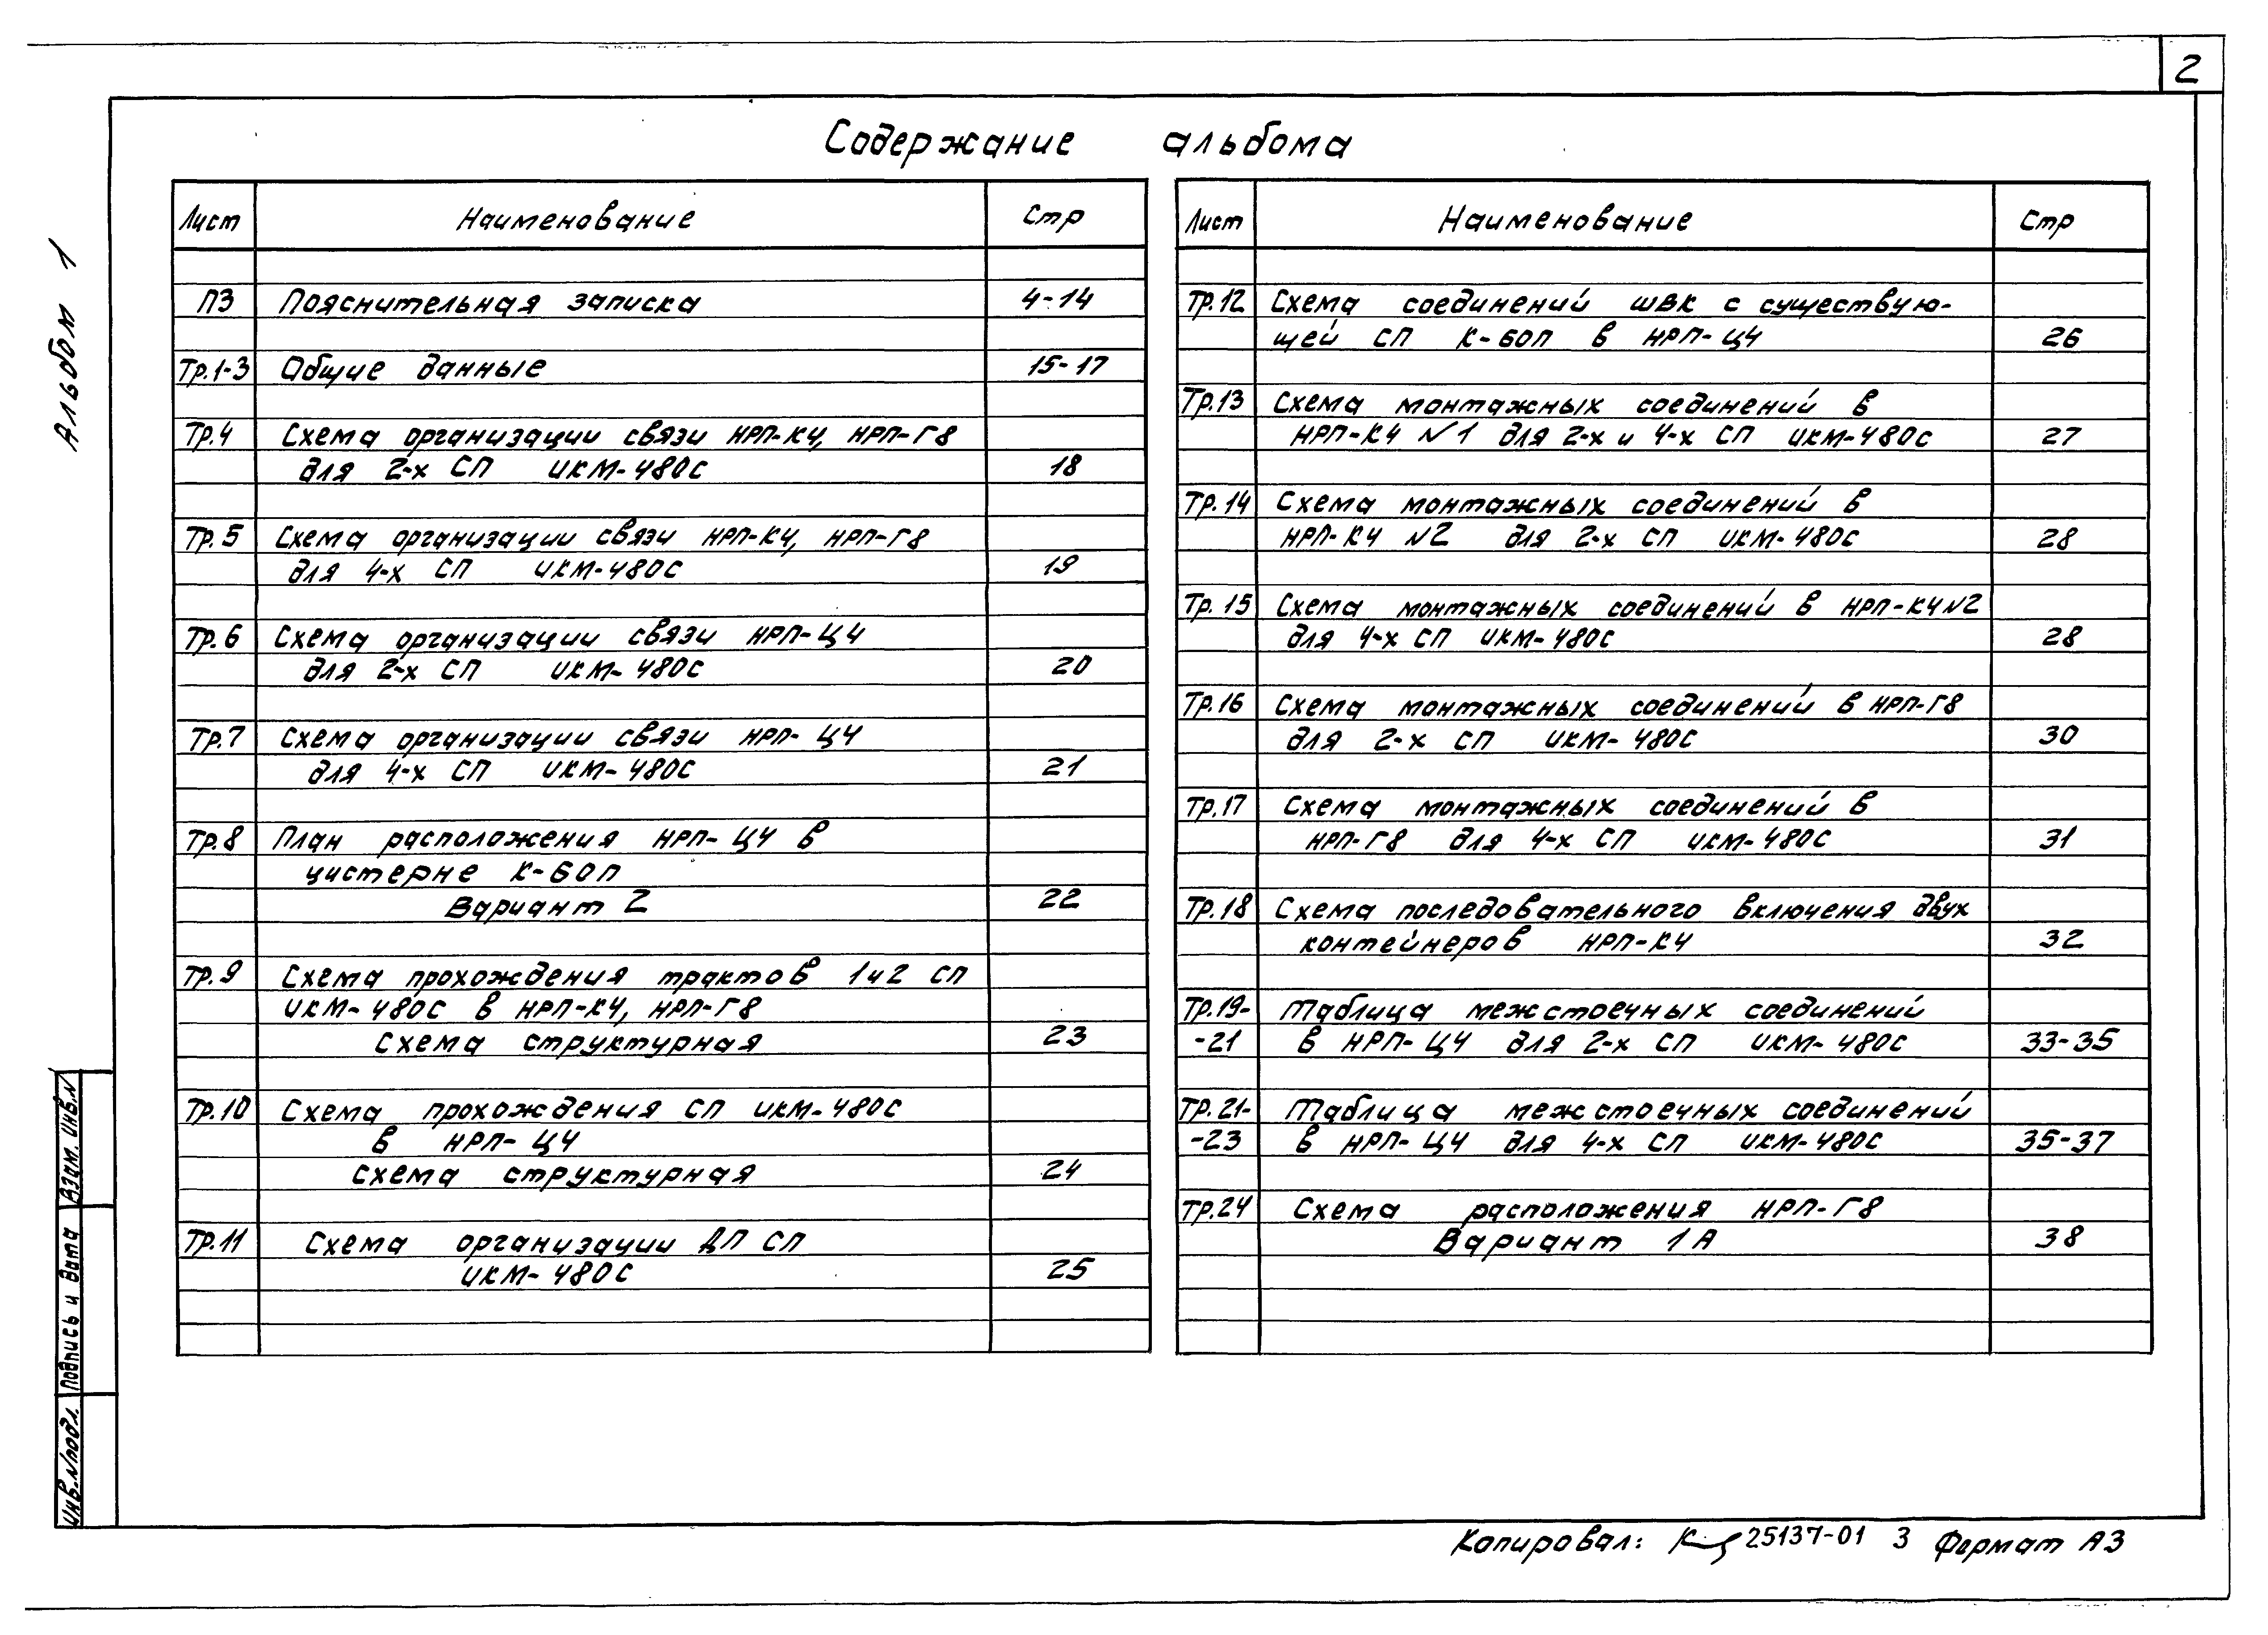 2
Содержание альбома
Альбом 1
Лист Наименование Стр
ПЗ Пояснительная записка 4-14
Тр.1-3 Общие данные 15-17
Тр.4 Схема организации связи НРП-К4, НРП-Г8
для 2-х СП ИКМ-480С 18
Тр.5 Схема организации связи НРП-К4, НРП-Г8
для 4-х СП ИКМ-480С 19
Тр.6 Схема организации связи НРП-Ц4
для 2-х СП ИКМ-480С 20
Тр.7 Схема организации связи НРП-Ц4
для 4-х СП ИКМ-480С 21
Тр.8 План расположения НРП-Ц4 в
цистерне К-60П
Вариант 2 22
Тр.9 Схема прохождения трактов 1и2 СП
ИКМ-480С в НРП-К4, НРП-Г8
Схема структурная 23
Тр.10 Схема прохождения СП ИКМ-480С
в НРП-Ц4
Схема структурная 24
Тр.11 Схема организации ДП СП
ИКМ-480С 25
Лист Наименование Стр
Тр.12 Схема соединений ШВК с существую-
щей СП К-60П в НРП-Ц4 26
Тр.13 Схема монтажных соединений в
НРП-К4 №1 для 2-х и 4-х СП ИКМ-480С 27
Тр.14 Схема монтажных соединений в
НРП-К4 №2 для 2-х СП ИКМ-480С 28
Тр.15 Схема монтажных соединений в НРП-К4№2
для 4-х СП ИКМ-480С 28
Тр.16 Схема монтажных соединений в НРП-Г8
для 2-х СП ИКМ-480С 30
Тр.17 Схема монтажных соединений в
НРП-Г8 для 4-х СП ИКМ-480С 31
Тр.18 Схема последовательного включения двух
контейнеров НРП-К4 32
Тр.19- Таблица межстоечных соединений
-21 в НРП-Ц4 для 2-х СП ИКМ-480С 33-35
Тр.21- Таблица межстоечных соединений
-23 в НРП-Ц4 для 4-х СП ИКМ-480С 35-37
Тр.24 Схема расположения НРП-Г8
Вариант 1А 38
Взам. инв.№
Подпись и дата
Инв.№подл.
Копировал: 25137-01 3 Формат А3